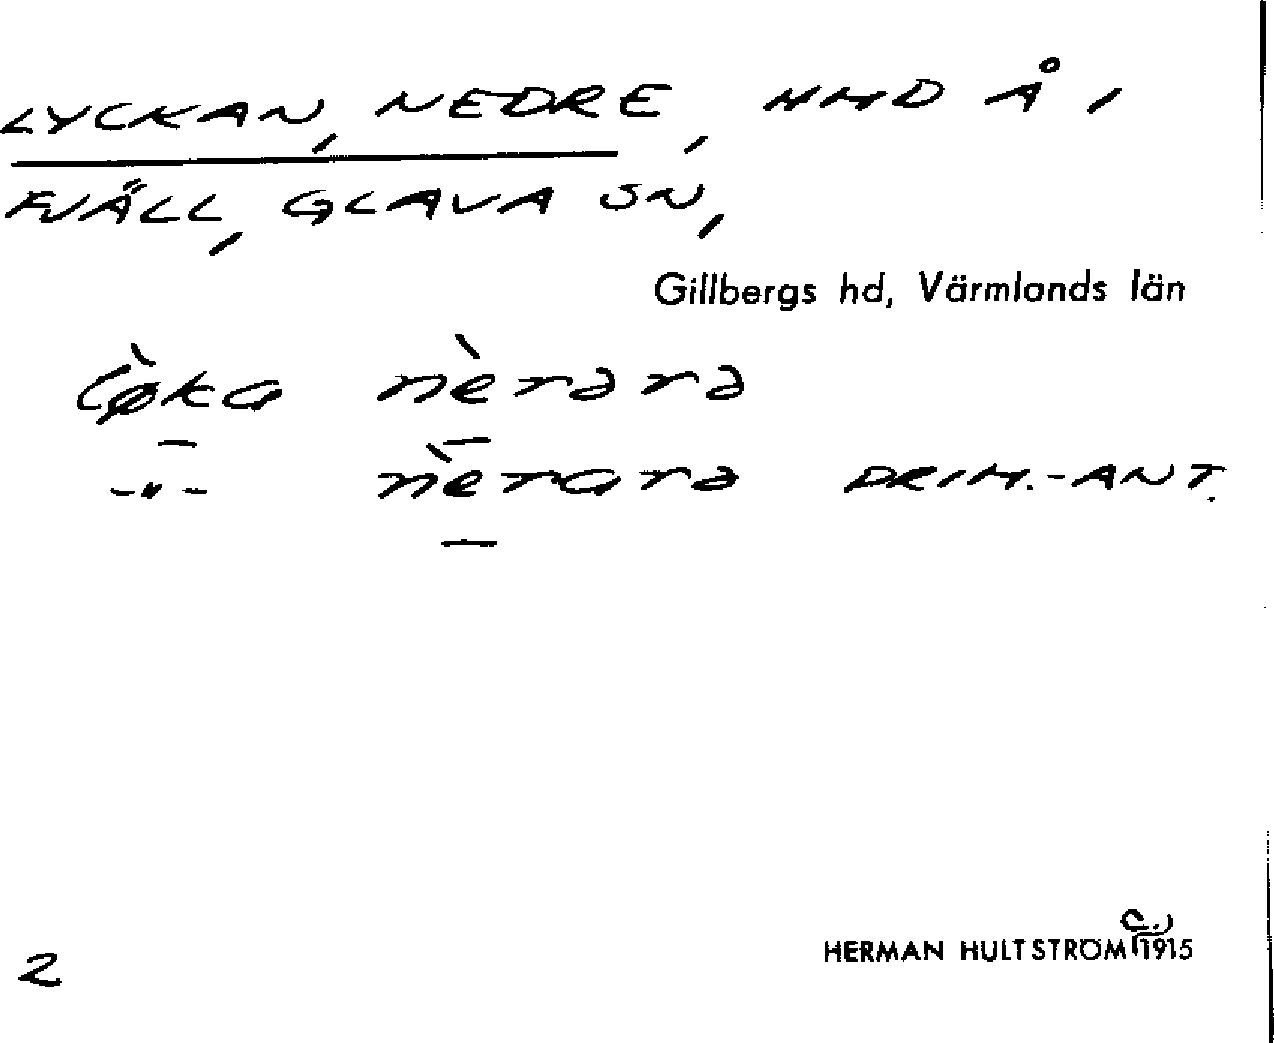 LYCKAN, NEDRE, HMD Å I
FJÄLL, GLAVA SN,
Gillbergs hd, Värmlands län
lø̀ka nèrərə
-"- nèrarə PRIM.-ANT.
HERMAN HULTSTRÖM (C.) 1915
2